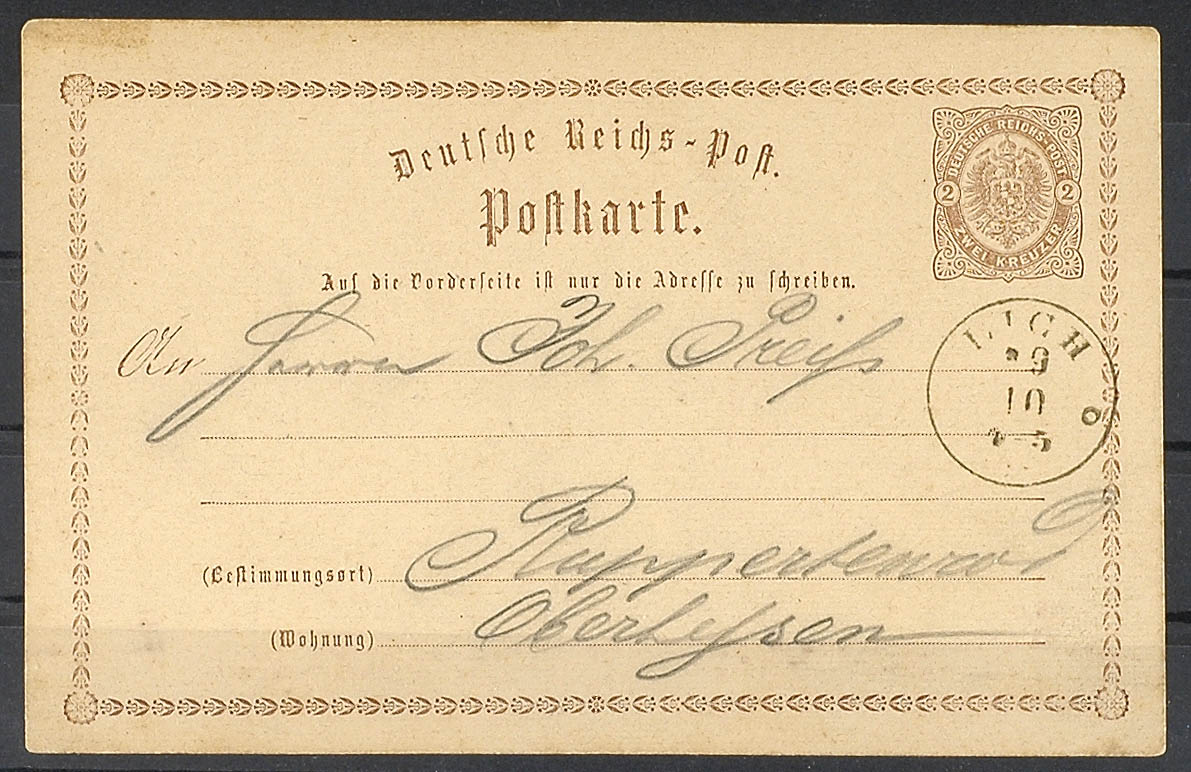 Deutsche Reichs-Post.
Postkarte.
DEUTSCHE REICHS-POST
2 2
ZWEI KREUZER
Auf die Vorderseite ist nur die Adresse zu schreiben.
An Herrn Joh. Preiß
LICH
29
10
(Bestimmungsort) Ruppertenrod
(Wohnung) Oberhessen